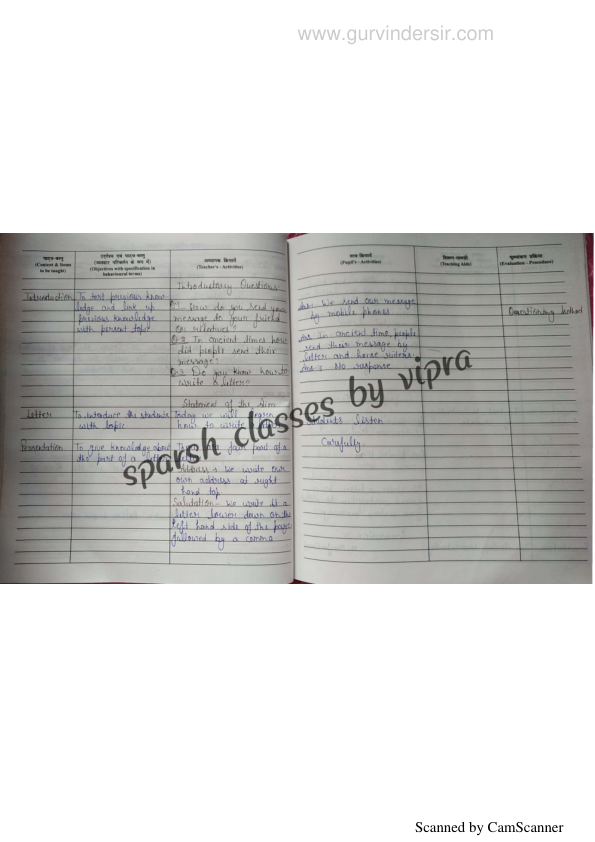 www.gurvindersir.com
पाठ्य-वस्तु
(Content & Items
to be taught)
उद्देश्य एवं पाठ्य-वस्तु
(व्यवहार परिवर्तन के रूप में)
(Objectives with specification in
behavioural terms)
अध्यापक क्रियायें
(Teacher's - Activities)
छात्र क्रियायें
(Pupil's - Activities)
शिक्षण सामग्री
(Teaching Aids)
मूल्यांकन प्रक्रिया
(Evaluation - Procedure)
Introductory Questions
Introduction
To test previous know
ledge and link up
previous knowledge
with persent topic
How do you send your
message to your friend
or relatives?
Q.2 In ancient times how
did people send their
message?
Q.3 Do you know how to
write a letter?
Ans. We send our message
by mobile phones
Ans In ancient time, people
send their message by
letter and horse
Ans: No response
Questioning Method
Statement of the Aim
Letter
To introduce the students
with topic
Today we will learn
how to write a
Students listen
Carefully
Persentation
To give knowledge about
the part of a letter
part of a
Address - we write our
own address at right
hand top
Salutation - we write it a
letter lower down on the
left hand side of the page
followed by a comma
sparsh classes by vipra
Scanned by CamScanner